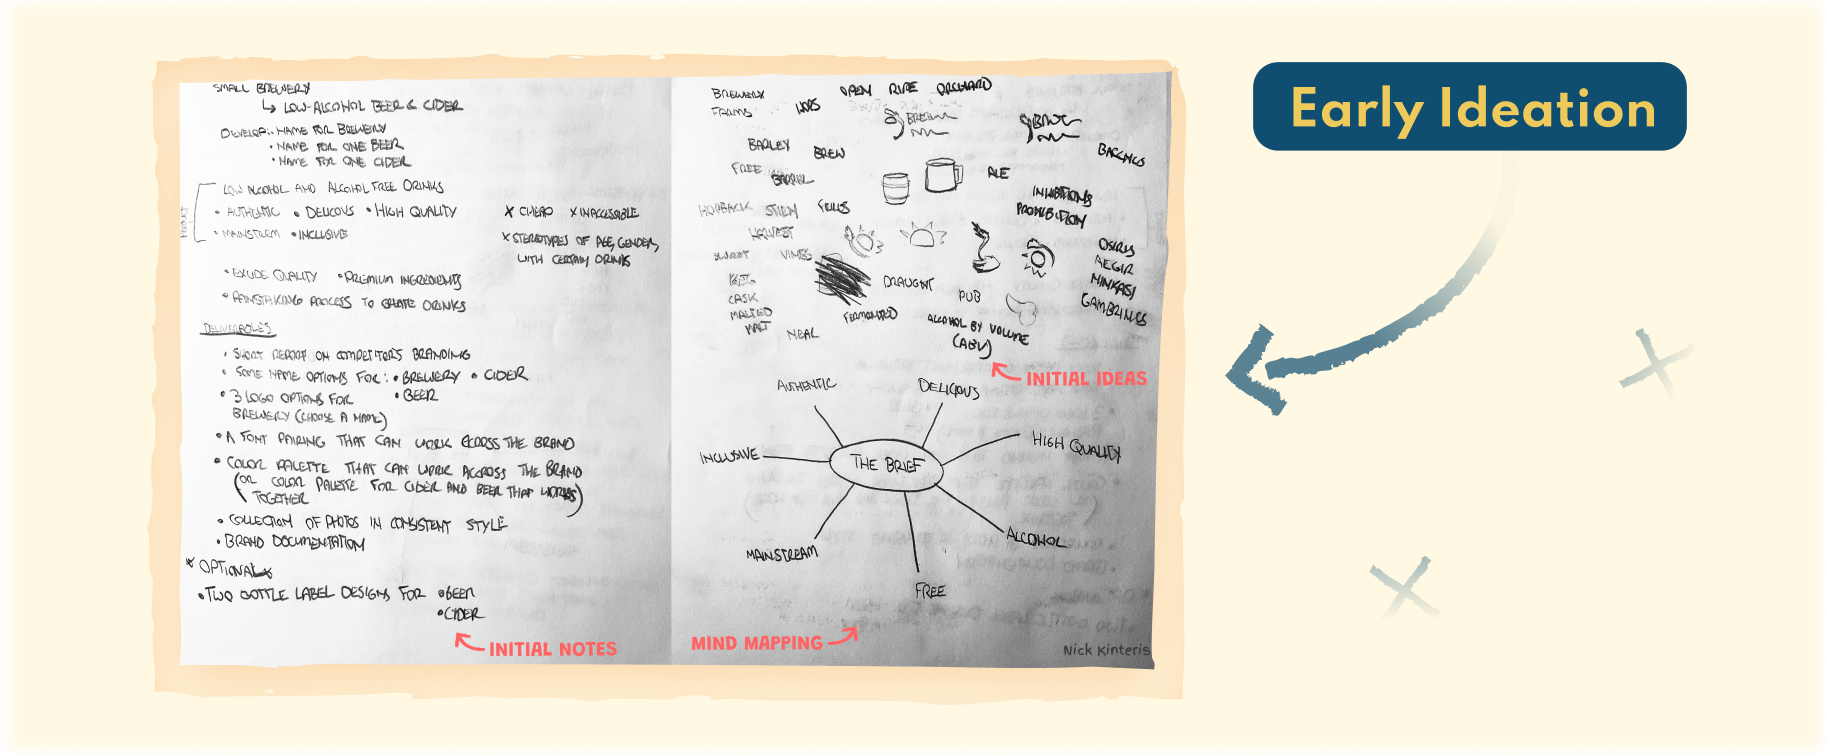 Early Ideation
SMALL BREWERY
↳ LOW-ALCOHOL BEER & CIDER
DEVELOP: • NAME FOR BREWERY
• NAME FOR ONE BEER
• NAME FOR ONE CIDER
LOW ALCOHOL AND ALCOHOL FREE DRINKS
• AUTHENTIC • DELICOUS • HIGH QUALITY
• MAINSTREM • INCLUSIVE
X CHEAP X INACCESSIBLE
X STEREOTYPES OF AGE, GENDER,
WITH CERTAIN DRINKS
• EXUDE QUALITY • PREMIUM INGREDIENTS
• PAINSTAKING PROCESS TO CREATE DRINKS
DELIVERABLES
• SHORT REPORT ON COMPETITOR'S BRANDING
• SOME NAME OPTIONS FOR: • BREWERY • CIDER
• BEER
• 3 LOGO OPTIONS FOR
BREWERY (CHOOSE A NAME)
• A FONT PAIRING THAT CAN WORK ACROSS THE BRAND
• COLOR PALETTE THAT CAN WORK ACCROSS THE BRAND
(OR COLOR PALETTE FOR CIDER AND BEER THAT WORKS
TOGETHER)
• COLLECTION OF PHOTOS IN CONSISTENT STYLE
• BRAND DOCUMENTATION
* OPTIONAL *
• TWO BOTTLE LABEL DESIGNS FOR • BEER
• CIDER
INITIAL NOTES
BREWERY
FARMS
HOPS
OPEN RIPE ORCHARD
BARLEY
BREW
BACCHUS
FREE
BARREL
ALE
INHIBITIONS
PROHIBITION
HOPBACK
STEM
FIELDS
HARVEST
OSIRIS
AEGIR
NINKASI
GAMBRINUS
SWEET
VINES
KEG
CASK
MALTED
MALT
DRAUGHT
PUB
FERMENTED
NEAL
ALCOHOL BY VOLUME
(ABV)
INITIAL IDEAS
AUTHENTIC
DELICIOUS
INCLUSIVE
THE BRIEF
HIGH QUALITY
MAINSTREAM
ALCOHOL
FREE
MIND MAPPING
Nick Kinteris